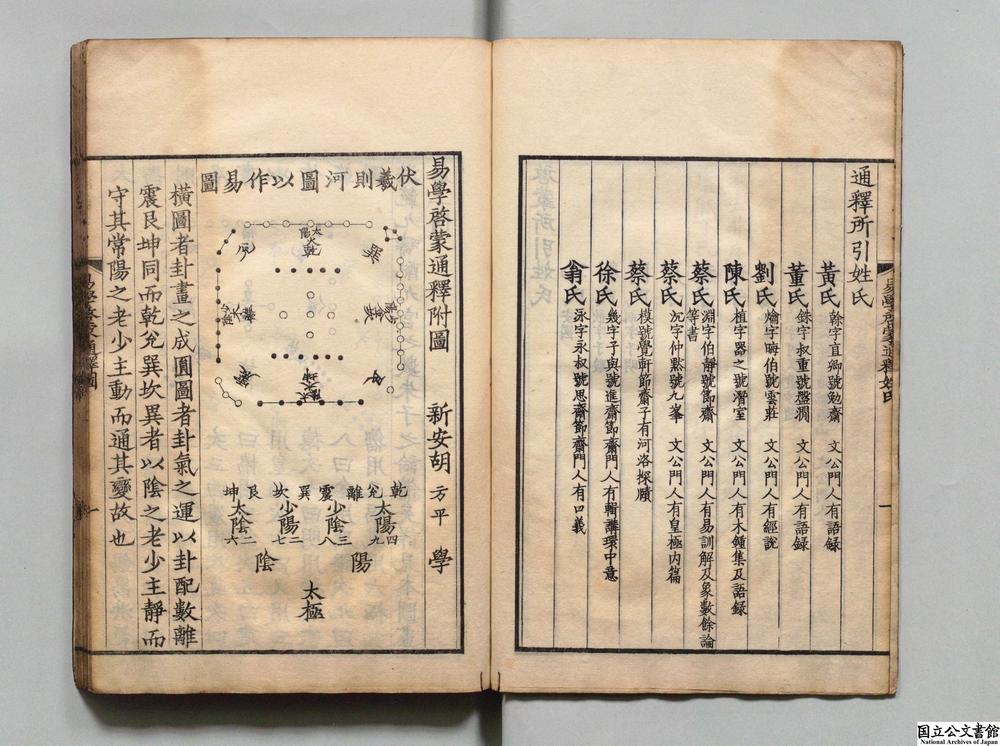 通釋所引姓氏
黃氏 榦字直卿號勉齋 文公門人有語録
董氏 銖字叔重號盤澗 文公門人有語録
劉氏 爚字晦伯號雲莊 文公門人有經說
陳氏 植字器之號潛室 文公門人有木鍾集及語録
蔡氏 淵字伯靜號節齋 文公門人有易訓解及象數餘論
等書
蔡氏 沉字仲黙號九峯 文公門人有皇極内篇
蔡氏 模號覺軒節齋子有河洛探賾
徐氏 幾字子與號進齋節齋門人有輯講環中意
翁氏 泳字永叔號思齋節齋門人有口義
易學啓蒙通釋姓氏
一
易學啓蒙通釋附圖
新安胡 方平 學
伏羲則河圖以作易圖
乾兊離震巽坎艮坤
太陽 四九
少陰 三八
少陽 二七
太陰
陽 陰
太極
橫圖者卦畫之成圓圖者卦氣之運以卦配數離
震艮坤同而乾兊巽坎異者以陰之老少主靜而
守其常陽之老少主動而通其變故也
易學啓蒙通釋圖
一
国立公文書館
National Archives of Japan